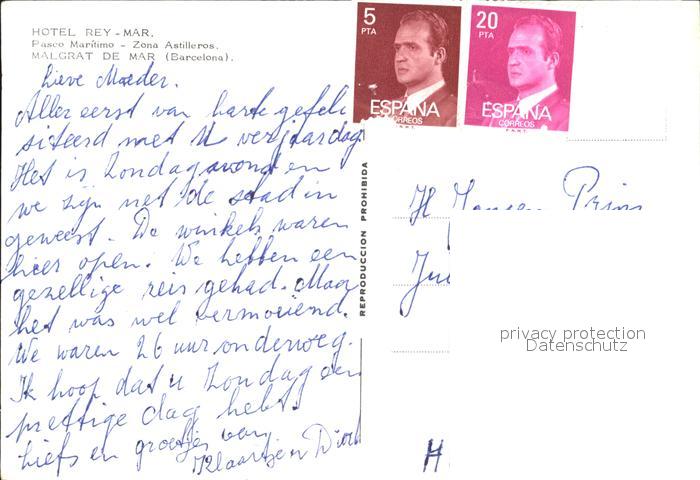 HOTEL REY - MAR.
Paseo Marítimo - Zona Astilleros.
MALGRAT DE MAR (Barcelona).
Lieve Moeder.
Allereerst van harte gefeli
siteerd met U verjaardag
Het is Zondagavond en
we zijn net de stad in
geweest. De winkels waren
hier open. We hebben een
gezellige reis gehad. Maar
het was wel vermoeiend.
We waren 26 uur onderweg.
Ik hoop dat u Zondag een
prettige dag hebt.
liefs en groetjes van
Klaartje en Dirk
REPRODUCCION PROHIBIDA
5
PTA
ESPAÑA
CORREOS
F.N.M.T.
20
PTA
ESPAÑA
CORREOS
F.N.M.T.
H
Prins
H
privacy protection
Datenschutz